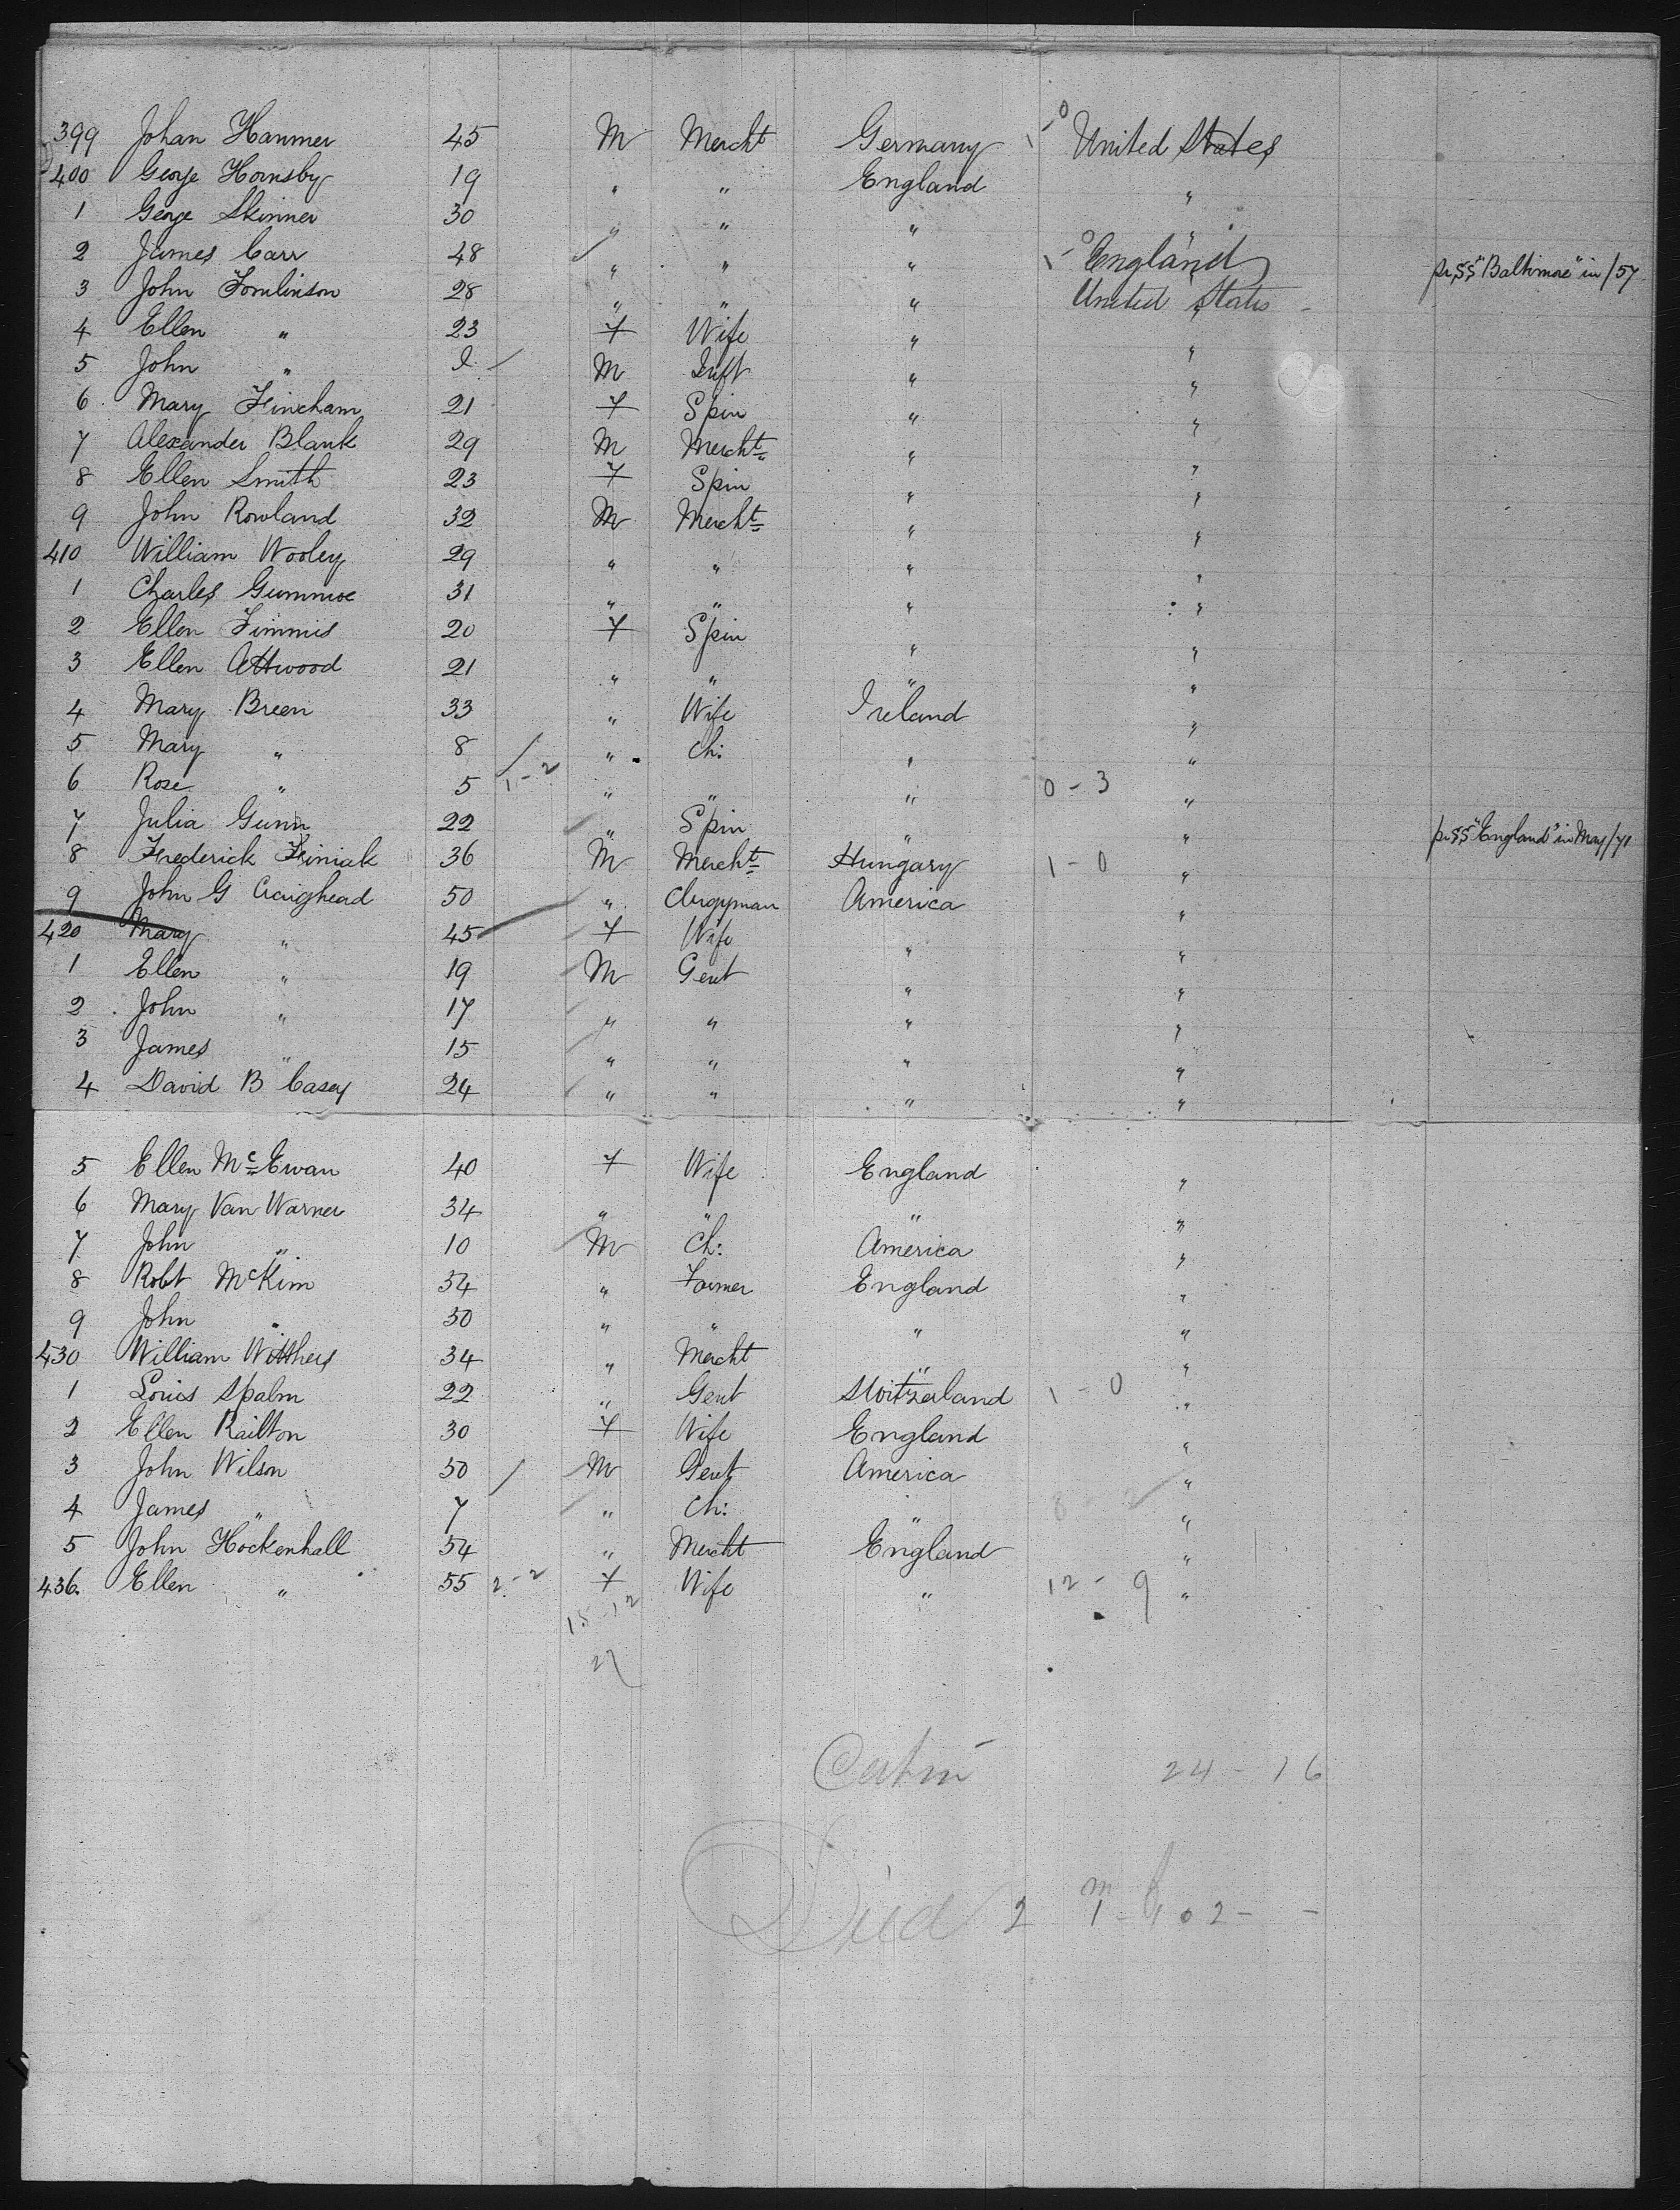 399 Johan Hanmer 45 M Mercht Germany 1-0 United States
400 George Hornsby 19 " " England "
1 George Skinner 30 " " " "
2 James Carr 48 " " " 1-0 England pr SS "Baltimore" in /57
3 John Tomlinson 28 " " " United States
4 Ellen " 23 F Wife " "
5 John " M Inft " "
6 Mary Fincham 21 F Spin " "
7 Alexander Blank 29 M Mercht " "
8 Ellen Smith 23 F Spin " "
9 John Rowland 32 M Mercht " "
410 William Wooley 29 " " " "
1 Charles Gummoe 31 " " " "
2 Ellen Timmis 20 F Spin " "
3 Ellen Attwood 21 " " " "
4 Mary Breen 33 " Wife Ireland "
5 Mary " 8 " Ch: " "
6 Rose " 5 1-2 " " " 0-3 "
7 Julia Gunn 22 " Spin " " pr SS "England" in May/71
8 Frederick Finiak 36 M Mercht Hungary 1-0 "
9 John G Craighead 50 " Clergyman America "
420 Mary " 45 F Wife " "
1 Ellen " 19 M Gent " "
2 John " 17 " " " "
3 James " 15 " " " "
4 David B Casey 24 " " " "
5 Ellen McEwan 40 F Wife England "
6 Mary Van Warner 34 " " " "
7 John " 10 M Ch: America "
8 Robt McKim 34 " Farmer England "
9 John " 30 " " " "
430 William Withers 34 " Mercht " "
1 Louis Spalm 22 " Gent Switzerland 1-0 "
2 Ellen Railton 30 F Wife England "
3 John Wilson 50 M Gent America "
4 James " 7 " Ch: " "
5 John Hockenhall 54 " Mercht England "
436. Ellen " 55 2-2 F Wife " 12-9 "
15-12
27
Cabin 24-16
Died 2 m 1